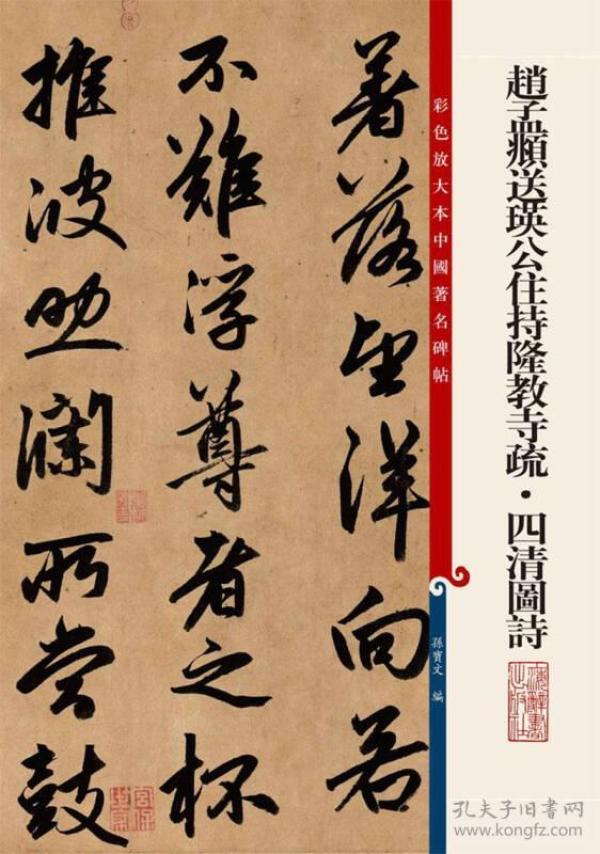 趙孟頫送瑛公住持隆教寺疏・四清圖詩
彩色放大本中國著名碑帖
孫寶文 編
著落望洋向若
不難浮尊者之杯
推波助瀾所尝鼓
孔夫子旧书网
www.kongfz.com